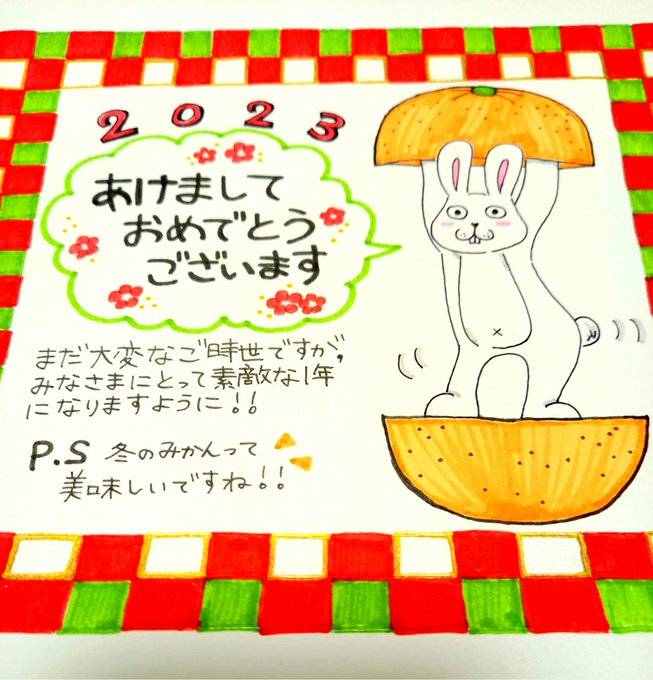 2023
あけまして
おめでとう
ございます
まだ大変なご時世ですが、
みなさまにとって素敵な1年
になりますように!!
P.S 冬のみかんって
美味しいですね!!